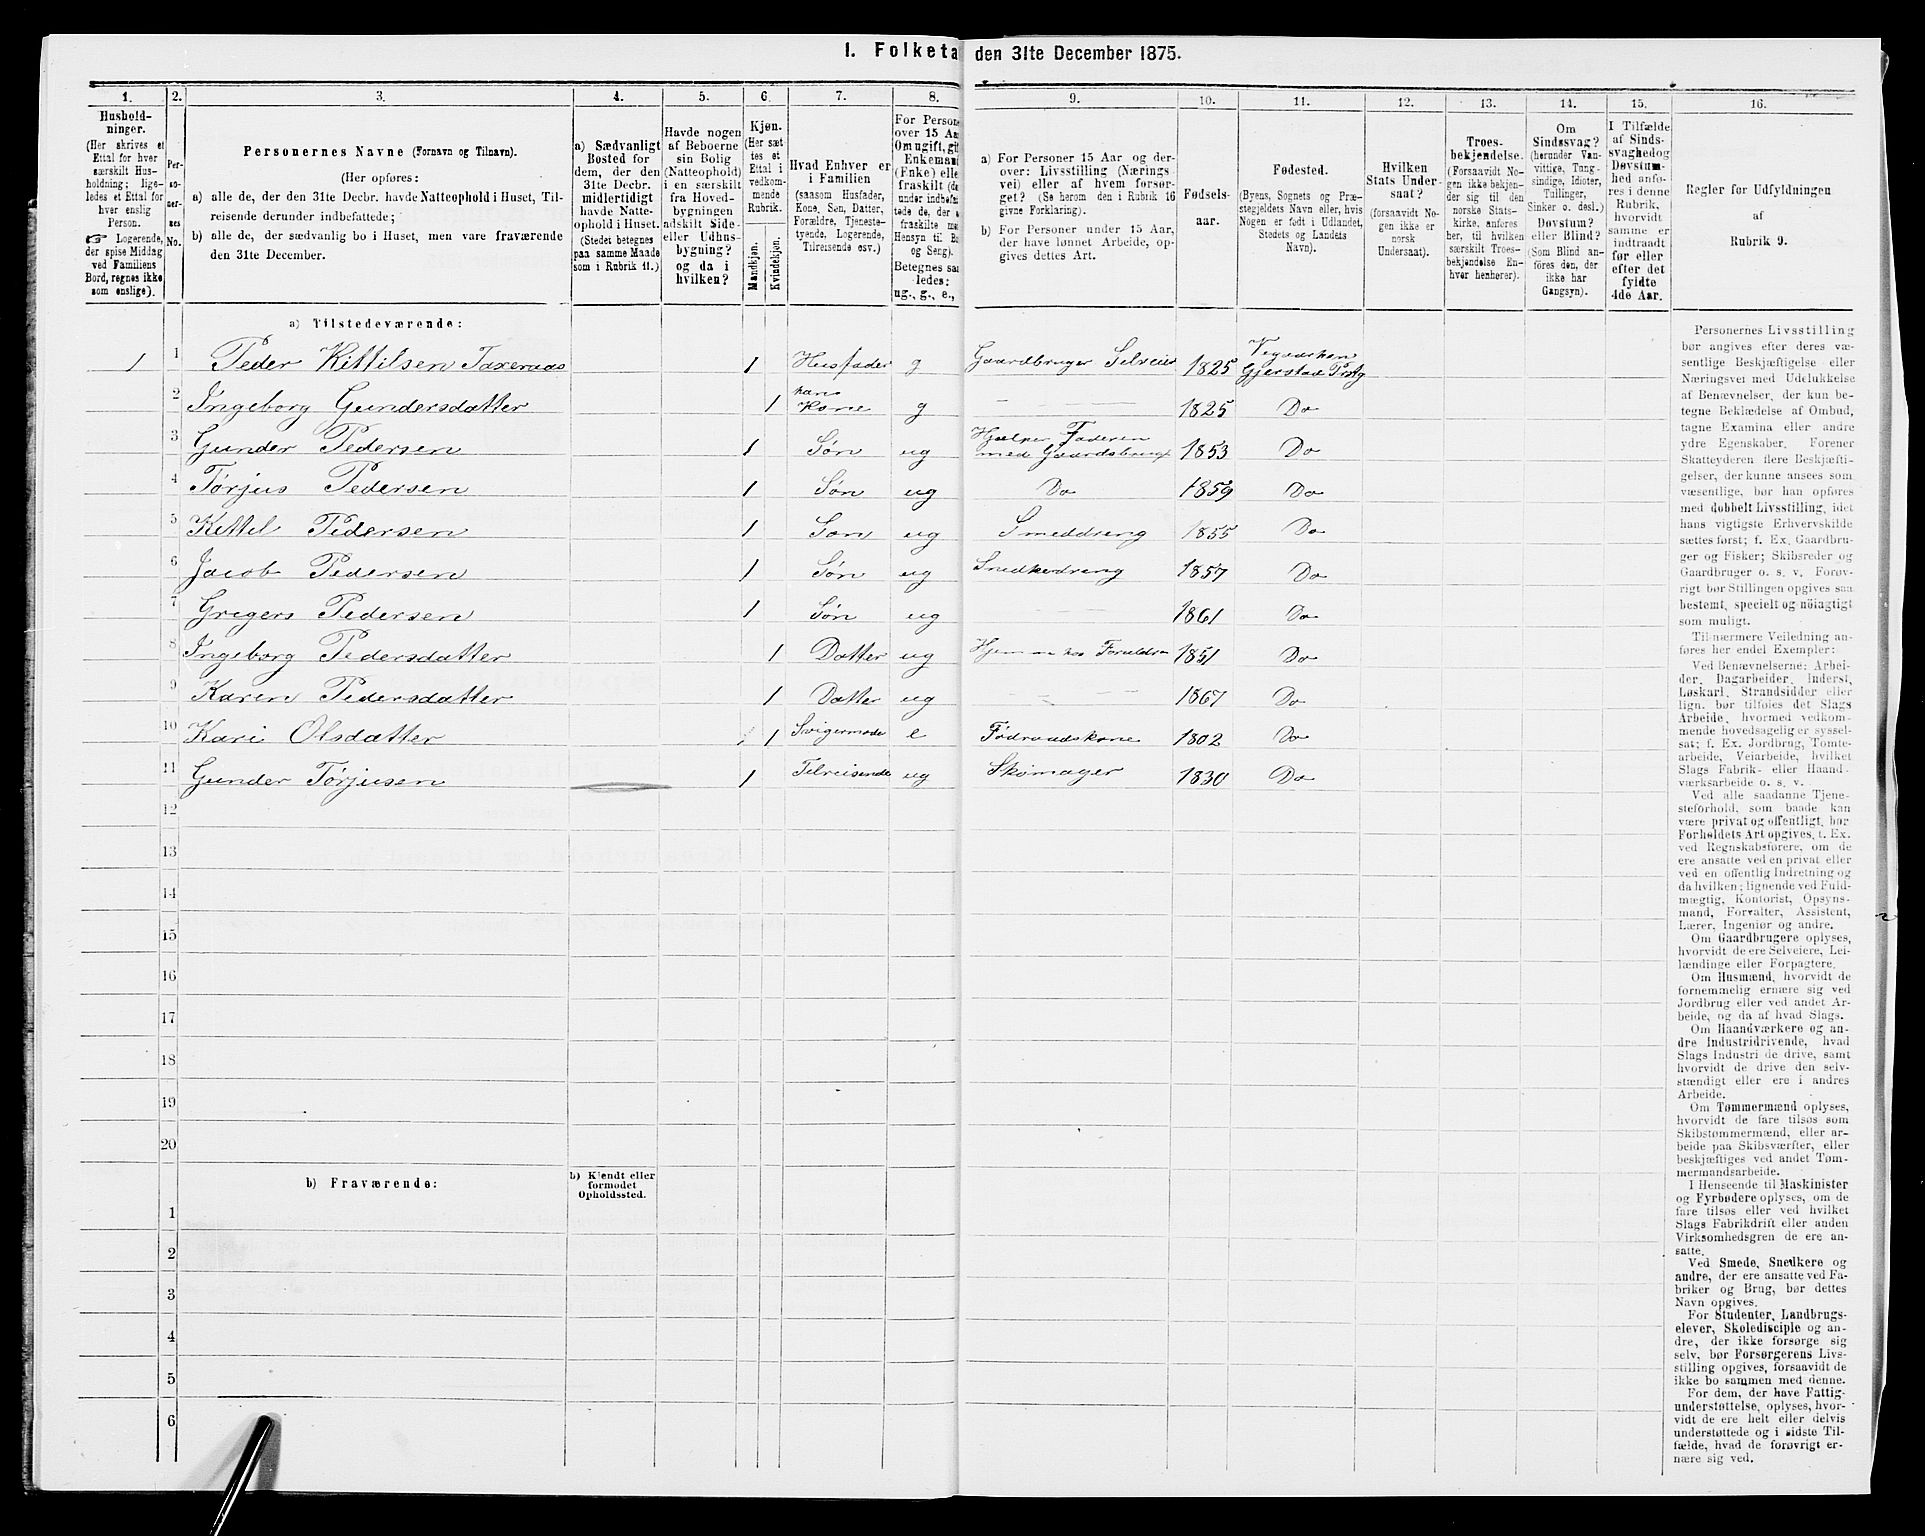 I. Folketa den 31te December 1875.
1. 2. 3. 4. 5. 6. 7. 8. 9. 10. 11. 12. 13. 14. 15. 16.
Hushold-
ninger.
(Her skrives et
Ettal for hver
særskilt Hus-
holdning; lige-
ledes et Ettal for
hver enslig
Person.
☞ Logerende,
der spise Middag
ved Familiens
Bord, regnes ikke
som enslige).
Per-
so-
ner-
nes
No.
Personernes Navne (Fornavn og Tilnavn).
(Her opføres:
a) alle de, der den 31te Decbr. havde Natteophold i Huset, Til-
reisende derunder indbefattede;
b) alle de, der sædvanlig bo i Huset, men vare fraværende
den 31te December.
a) Sædvanligt
Bosted for
dem, der den
31te Decbr.
midlertidigt
havde Natte-
ophold i Huset.
(Stedet betegnes
paa samme Maade
som i Rubrik 11.)
Havde nogen
af Beboerne
sin Bolig
(Natteophold)
i en særskilt
fra Hoved-
bygningen
adskilt Side-
eller Udhus-
bygning?
og da i
hvilken?
Kjøn.
(Her sæt
tes et
Ettal i
vedkom-
mende
Rubrik.
Mandkjøn.
Kvindekjøn.
Hvad Enhver er
i Familien
(saasom Husfader,
Kone, Søn, Datter,
Forældre, Tjeneste-
tyende, Logerende,
Tilreisende osv.)
For Persone
over 15 Aa
Om ugift, gif
Enkeman
(Enke) elle
fraskilt (de
under indbefat
tede de, der e
fraskilte me
Hensyn til Bo
og Seng).
Betegnes saa
ledes:
ug., g., e.,
a) For Personer 15 Aar og der-
over: Livsstilling (Nærings-
vei) eller af hvem forsør-
get? (Se herom den i Rubrik 16
givne Forklaring).
b) For Personer under 15 Aar,
der have lønnet Arbeide, op-
gives dettes Art.
Fødsels-
aar.
Fødested.
(Byens, Sognets og Præ-
stegjeldets Navn eller, hvis
Nogen er født i Udlandet,
Stedets og Landets
Navn).
Hvilken
Stats Under-
saat?
(forsaavidt No-
gen ikke er
norsk
Undersaat).
Troes-
bekjendelse.
(Forsaavidt No-
gen ikke bekjen-
der sig til den
norske Stats-
kirke, anføres
her, til hvilken
særskilt Troes-
bekjendelse En-
hver henhører).
Om
Sindssvag?
(herunder Van-
vittige, Tung-
sindige, Idioter,
Tullinger,
Sinker o. desl.)
Døvstum?
eller Blind?
(Som Blind an-
føres den, der
ikke har
Gangsyn).
I Tilfælde
af Sinds-
svaghed og
Døvstum-
hed anfø-
res i denne
Rubrik,
hvorvidt
samme er
indtraadt
før eller
efter det
fyldte
4de Aar.
Regler før Udfyldningen
af
Rubrik 9.
a) Tilstedeværende:
1 1 Peder Kittilsen Taxeraas 1 Husfader g Gaardbruger Selveier 1825 Vegaarhen Gjerstad Prstg
2 Ingeborg Gundersdatter 1 hans Kone g — — — 1825 Do
3 Gunder Pedersen 1 Søn ug Hjælper Faderen med Gaardsbrug 1853 Do
4 Tørjus Pedersen 1 Søn ug Do 1859 Do
5 Kittel Pedersen 1 Søn ug Smeddreng 1855 Do
6 Jacob Pedersen 1 Søn ug Snedkedreng 1857 Do
7 Gregers Pedersen 1 Søn ug — — 1861 Do
8 Ingeborg Pedersdatter 1 Datter ug Hjemme hos Foreldre 1851 Do
9 Karen Pedersdatter 1 Datter ug — — 1867 Do
10 Kari Olsdatter 1 Svigermode e Fødraadskone 1802 Do
11 Gunder Tørjusen 1 Tilreisende ug Skømager 1830 Do
12
13
14
15
16
17
18
19
20
b) Fraværende:
b) Kjendt eller
formodet
Opholdssted.
1
2
3
4
5
6
Personernes Livsstilling
bør angives efter deres væ-
sentlige Beskjæftigelse eller
Næringsvei med Udelukkelse
af Benævnelser, der kun be-
tegne Beklædelse af Ombud,
tagne Examina eller andre
ydre Egenskaber. Forener
Skatteyderen flere Beskjæfti-
gelser, der kunne ansees som
væsentlige, bør han opføres
med dobbelt Livsstilling, idet
hans vigtigste Erhvervskilde
sættes først; f. Ex. Gaardbru-
ger og Fisker; Skibsreder og
Gaardbruger o. s. v. Forøv-
rigt bør Stillingen opgives saa
bestemt, specielt og nöiagtigt
som muligt.
Til nærmere Veiledning an-
føres her endel Exempler:
Ved Benævnelserne: Arbei-
der, Dagarbeider, Inderst,
Løskarl, Strandsidder eller
lign. bør tilføies det Slags
Arbeide, hvormed vedkom-
mende hovedsagelig er syssel-
sat; f. Ex. Jordbrug, Tomte-
arbeide, Veiarbeide, hvilket
Slags Fabrik- eller Haand-
værksarbeide o. s. v.
Ved alle saadanne Tjene-
steforhold, som baade kan
være privat og offentligt, bør
Forholdets Art opgives, f. Ex.
ved Regnskabsførere, om de
ere ansatte ved en privat eller
ved en offentlig Indretning og
da hvilken; lignende ved Fuld-
mægtig, Kontorist, Opsyns-
mand, Forvalter, Assistent,
Lærer, Ingeniør og andre.
Om Gaardbrugere oplyses,
hvorvidt de ere Selveiere, Lei-
lændinge eller Forpagtere.
Om Husmænd, hvorvidt de
fornemmelig ernære sig ved
Jordbrug eller ved andet Ar-
beide, og da af hvad Slags.
Om Haandværkere og an-
dre Industridrivende, hvad
Slags Industri de drive, samt
hvorvidt de drive den selv-
stændigt eller ere i andres
Arbeide.
Om Tømmermænd oplyses,
hvorvidt de fare tilsøs som
Skibstømmermænd, eller ar-
beide paa Skibsværfter, eller
beskjæftiges ved andet Tøm-
mermandsarbeide.
I Henseende til Maskinister
og Fyrbødere oplyses, om de
fare tilsøs eller ved hvilket
Slags Fabrikdrift eller anden
Virksomhedsgren de ere an-
satte.
Ved Smede, Snedkere og
andre, der ere ansatte ved Fa-
briker og Brug, bør dettes
Navn opgives.
For Studenter, Landbrugs-
elever, Skoledisciple og an-
dre, der ikke forsørge sig
selv, bør Forsørgerens Livs-
stilling opgives, forsaavidt de
ikke bo sammen med denne.
For dem, der have Fattig-
understøttelse, oplyses, hvor-
vidt de ere helt eller delvis
understøttede og i sidste Til-
fælde, hvad de forøvrigt er-
nære sig ved.